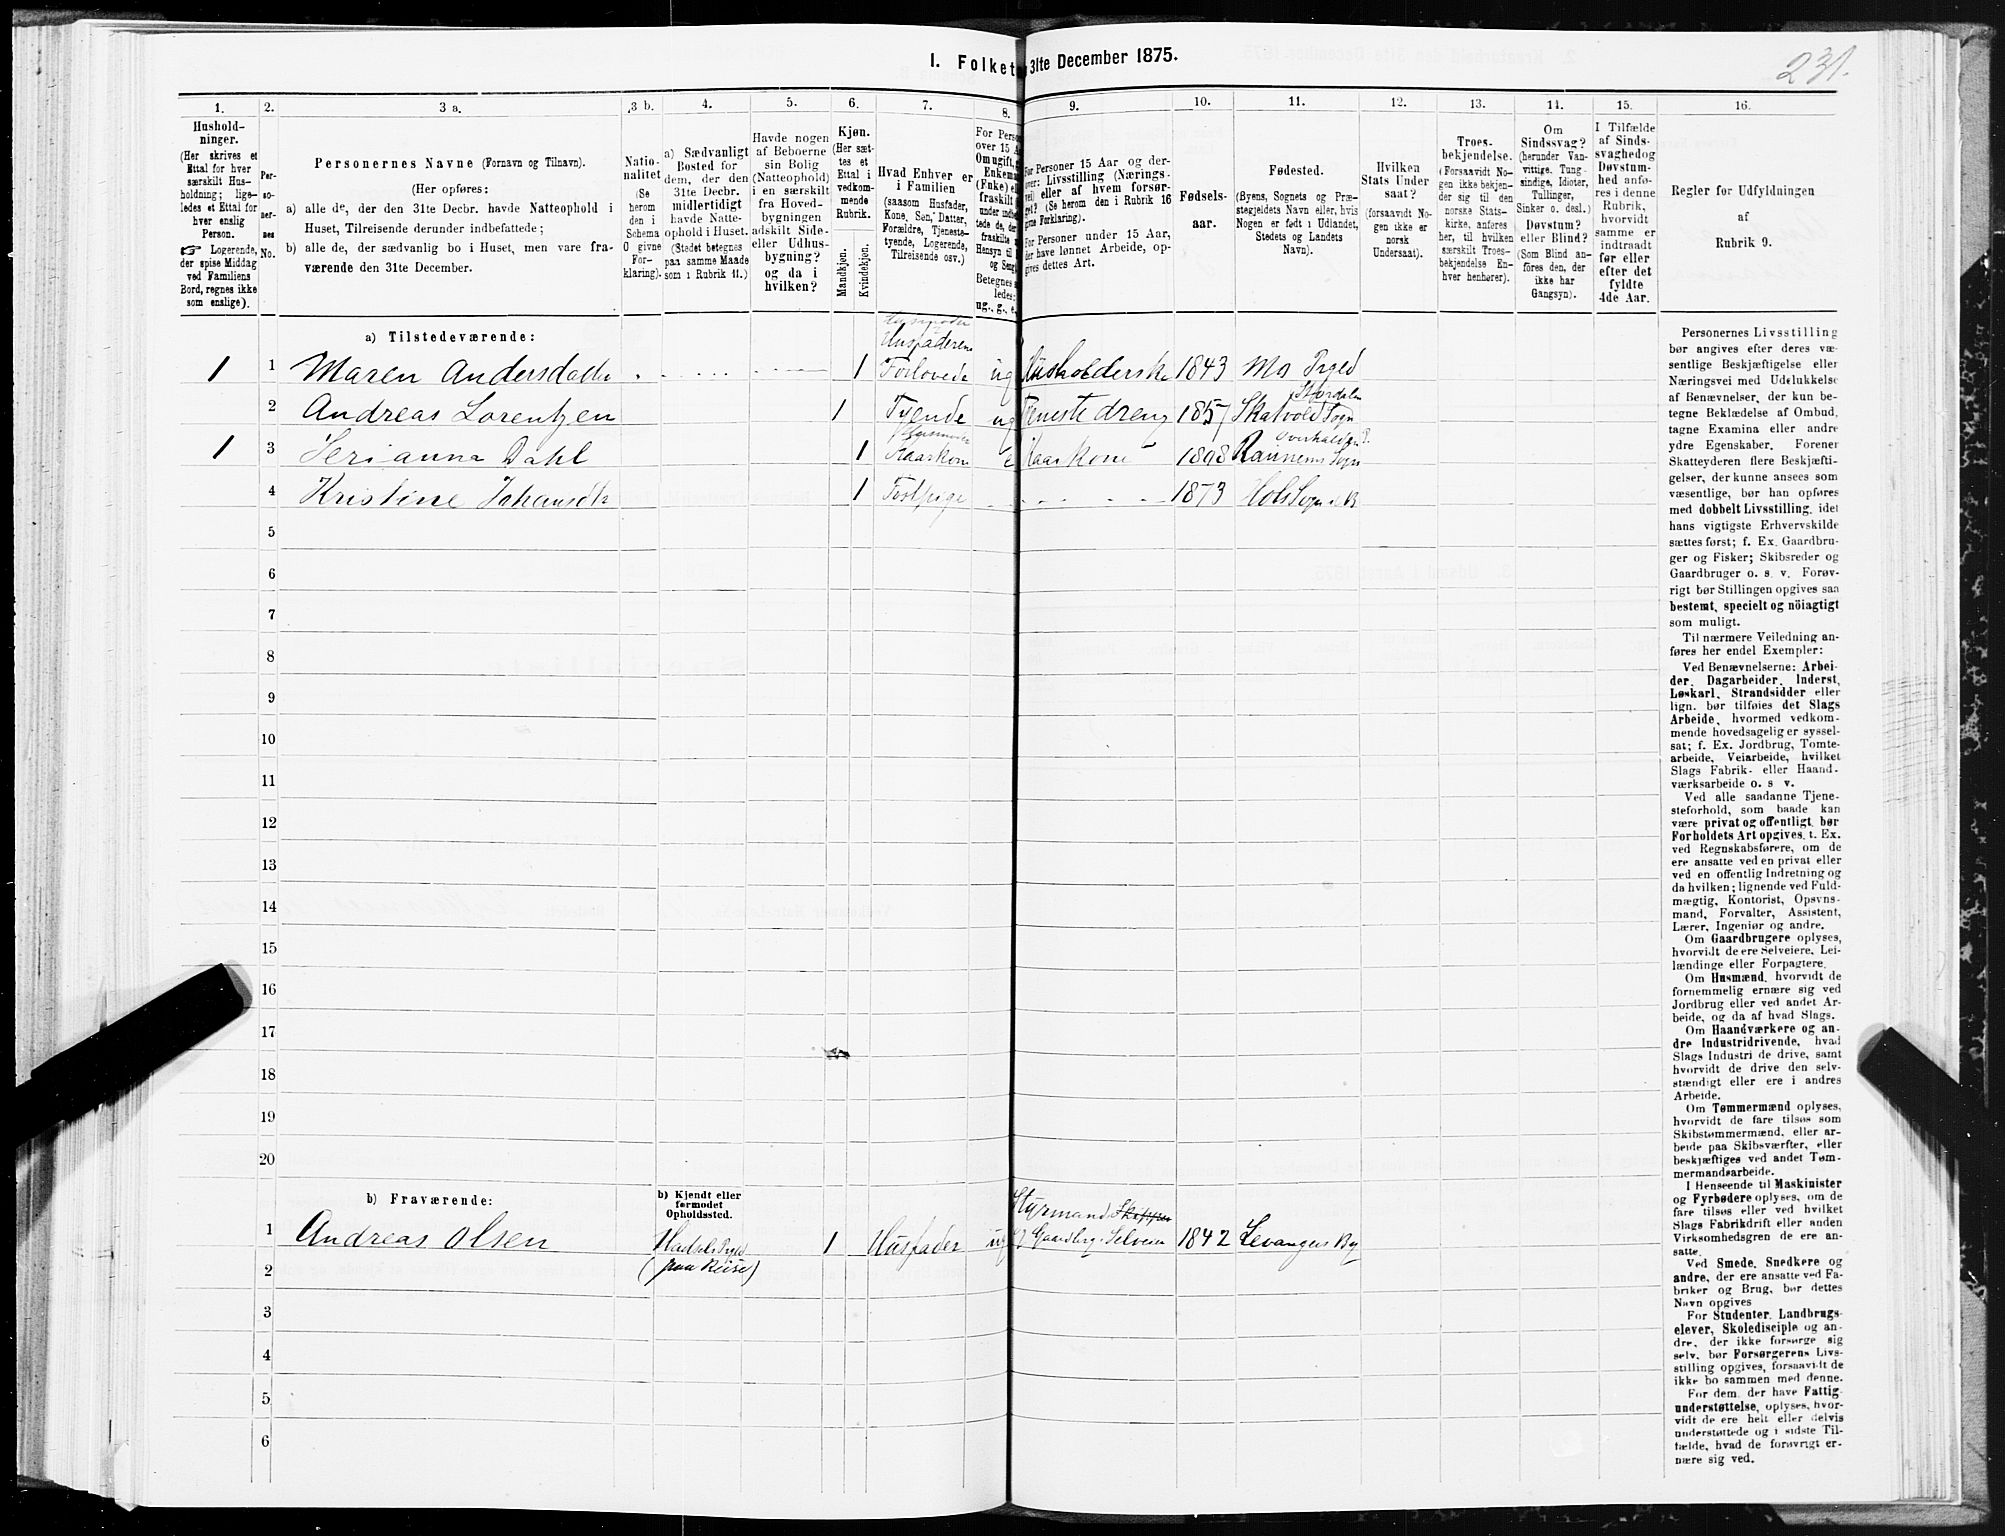 1. Folket
31te December 1875.
231.
1.
2.
3 a.
3 b.
4.
5.
6.
7.
8.
9.
10.
11.
12.
13.
14.
15.
16.
Hushold-
ninger.
(Her skrives et
Ettal for hver
særskilt Hus-
holdning; lige-
ledes et Ettal for
hver enslig
Person.
☞ Logerende,
der spise Middag
ved Familiens
Bord, regnes ikke
som enslige).
Per-
so-
ner-
nes
No.
Personernes Navne (Fornavn og Tilnavn).
(Her opføres:
a) alle de, der den 31te Decbr. havde Natteophold i
Huset, Tilreisende derunder indbefattede;
b) alle de, der sædvanlig bo i Huset, men vare fra-
værende den 31te December.
Natio-
nalitet
(Se
herom
den i
Schema
O givne
For-
klaring).
a) Sædvanligt
Bosted for
dem, der den
31te Decbr.
midlertidigt
havde Natte-
ophold i Huset.
(Stedet betegnes
paa samme Maade
som i Rubrik 11.)
Havde nogen
af Beboerne
sin Bolig
(Natteophold)
i en særskilt
fra Hoved-
bygningen
adskilt Side-
eller Udhus-
bygning?
og da i
hvilken?
Kjøn.
(Her sæt-
tes et
Ettal i
vedkom-
mende
Rubrik.
Mandkjøn.
Kvindekjøn.
Hvad Enhver er
i Familien
(saasom Husfader,
Kone, Søn, Datter,
Forældre, Tjeneste-
tyende, Logerende,
Tilreisende osv.)
For Perso
over 15 A
Om ugift,
Enkema
(Fnke) el
fraskilt
under indb
tede de, de
fraskilte
Hensyn til
og Seng
Betegnes
ledes:
ug., g., e.
For Personer 15 Aar og der-
over: Livsstilling (Nærings-
vei) eller af hvem forsør-
get? (Se herom den i Rubrik 16
givne Forklaring).
For Personer under 15 Aar,
der have lønnet Arbeide, op-
gives dettes Art.
Fødsels-
aar.
Fødested.
(Byens, Sognets og Præ-
stegjeldets Navn eller, hvis
Nogen er født i Udlandet,
Stedets og Landets
Navn).
Hvilken
Stats Under
saat?
(forsaavidt No-
gen ikke er
norsk
Undersaat).
Troes-
bekjendelse.
(Forsaavidt No-
gen ikke bekjen-
der sig til den
norske Stats-
kirke, anføres
her, til hvilken
særskilt Troes-
bekjendelse En-
hver henhører).
Om
Sindssvag?
(herunder Van-
vittige, Tung-
sindige, Idioter,
Tullinger,
Sinker o. desl.)
Døvstum?
eller Blind?
(Som Blind an-
føres den, der
ikke har
Gangsyn).
I Tilfælde
af Sinds-
svaghed og
Døvstum-
hed anfø-
res i denne
Rubrik,
hvorvidt
samme er
indtraadt
før eller
efter det
fyldte
4de Aar.
Regler for Udfyldningen
af
Rubrik 9.
a) Tilstedeværende:
1 1 Maren Andersdatter 1 Husfaderens Forlovede ug Husholderske 1843 Mo Prgjed
2 Andreas Lorentzen 1 Tyende ug Tjenestedreng 1857 Skatvold Sogn Stjørdalen
1 3 Serianna Dahl 1 Kaarkone e Kaarkone 1808 Rannem Sogn Overhalden P.
4 Kristine Johansdtr 1 1873 Hols Sogn
5
6
7
8
9
10
11
12
13
14
15
16
17
18
19
20
b) Fraværende:
b) Kjendt eller
formodet
Opholdssted.
Styrmand Skipper
1 Andreas Olsen Hadsel Prgjd 1 Husfader ug Gaardbrg. Selveier 1842 Levanger By
2 (paa Reise)
3
4
5
6
Personernes Livsstilling
bør angives efter deres væ-
sentlige Beskjæftigelse eller
Næringsvei med Udelukkelse
af Benævnelser, der kun be-
tegne Beklædelse af Ombud,
tagne Examina eller andre
ydre Egenskaber. Forener
Skatteyderen flere Beskjæfti-
gelser, der kunne ansees som
væsentlige, bør han opføres
med dobbelt Livsstilling, idet
hans vigtigste Erhvervskilde
sættes først; f. Ex. Gaardbru-
ger og Fisker; Skibsreder og
Gaardbruger o. s. v. Forøv-
rigt bør Stillingen opgives saa
bestemt, specielt og nöiagtigt
som muligt.
Til nærmere Veiledning an-
føres her endel Exempler:
Ved Benævnelserne: Arbei-
der, Dagarbeider, Inderst,
Løskarl, Strandsidder eller
lign. bør tilføies det Slags
Arbeide, hvormed vedkom-
mende hovedsagelig er syssel-
sat; f. Ex. Jordbrug, Tomte-
arbeide, Veiarbeide, hvilket
Slags Fabrik- eller Haand-
værksarbeide o. s v.
Ved alle saadanne Tjene-
steforhold, som baade kan
være privat og offentligt, bør
Forholdets Art opgives, t. Ex.
ved Regnskabsførere, om de
ere ansatte ved en privat eller
ved en offentlig Indretning og
da hvilken; lignende ved Fuld-
mægtig, Kontorist, Opsyns-
mand, Forvalter, Assistent,
Lærer, Ingeniør og andre.
Om Gaardbrugere oplyses,
hvorvidt de ere Selveiere, Lei-
lændinge eller Forpagtere.
Om Husmænd, hvorvidt de
fornemmelig ernære sig ved
Jordbrug eller ved andet Ar-
beide, og da af hvad Slags.
Om Haandværkere og an-
dre Industridrivende, hvad
Slags Industri de drive, samt
hvorvidt de drive den selv-
stændigt eller ere i andres
Arbeide.
Om Tømmermænd oplyses,
hvorvidt de fare tilsøs som
Skibstømmermænd, eller ar-
beide paa Skibsværfter, eller
beskjæftiges ved andet Tøm-
mermandsarbeide.
I Henseende til Maskinister
og Fyrbødere oplyses, om de
fare tilsøs eller ved hvilket
Slags Fabrikdrift eller anden
Virksomhedsgren de ere an-
satte.
Ved Smede, Snedkere og
andre, der ere ansatte ved Fa-
briker og Brug, bør dettes
Navn opgives
For Studenter, Landbrugs-
elever, Skoledisciple og an-
dre, der ikke forsørge sig
selv, bør Forsørgerens Livs-
stilling opgives, forsaavidt de
ikke bo sammen med denne.
For dem, der have Fattig-
understøttelse, oplyses, hvor-
vidt de ere helt eller delvis
understøttede og i sidste Til-
fælde, hvad de forøvrigt er-
nære sig ved.